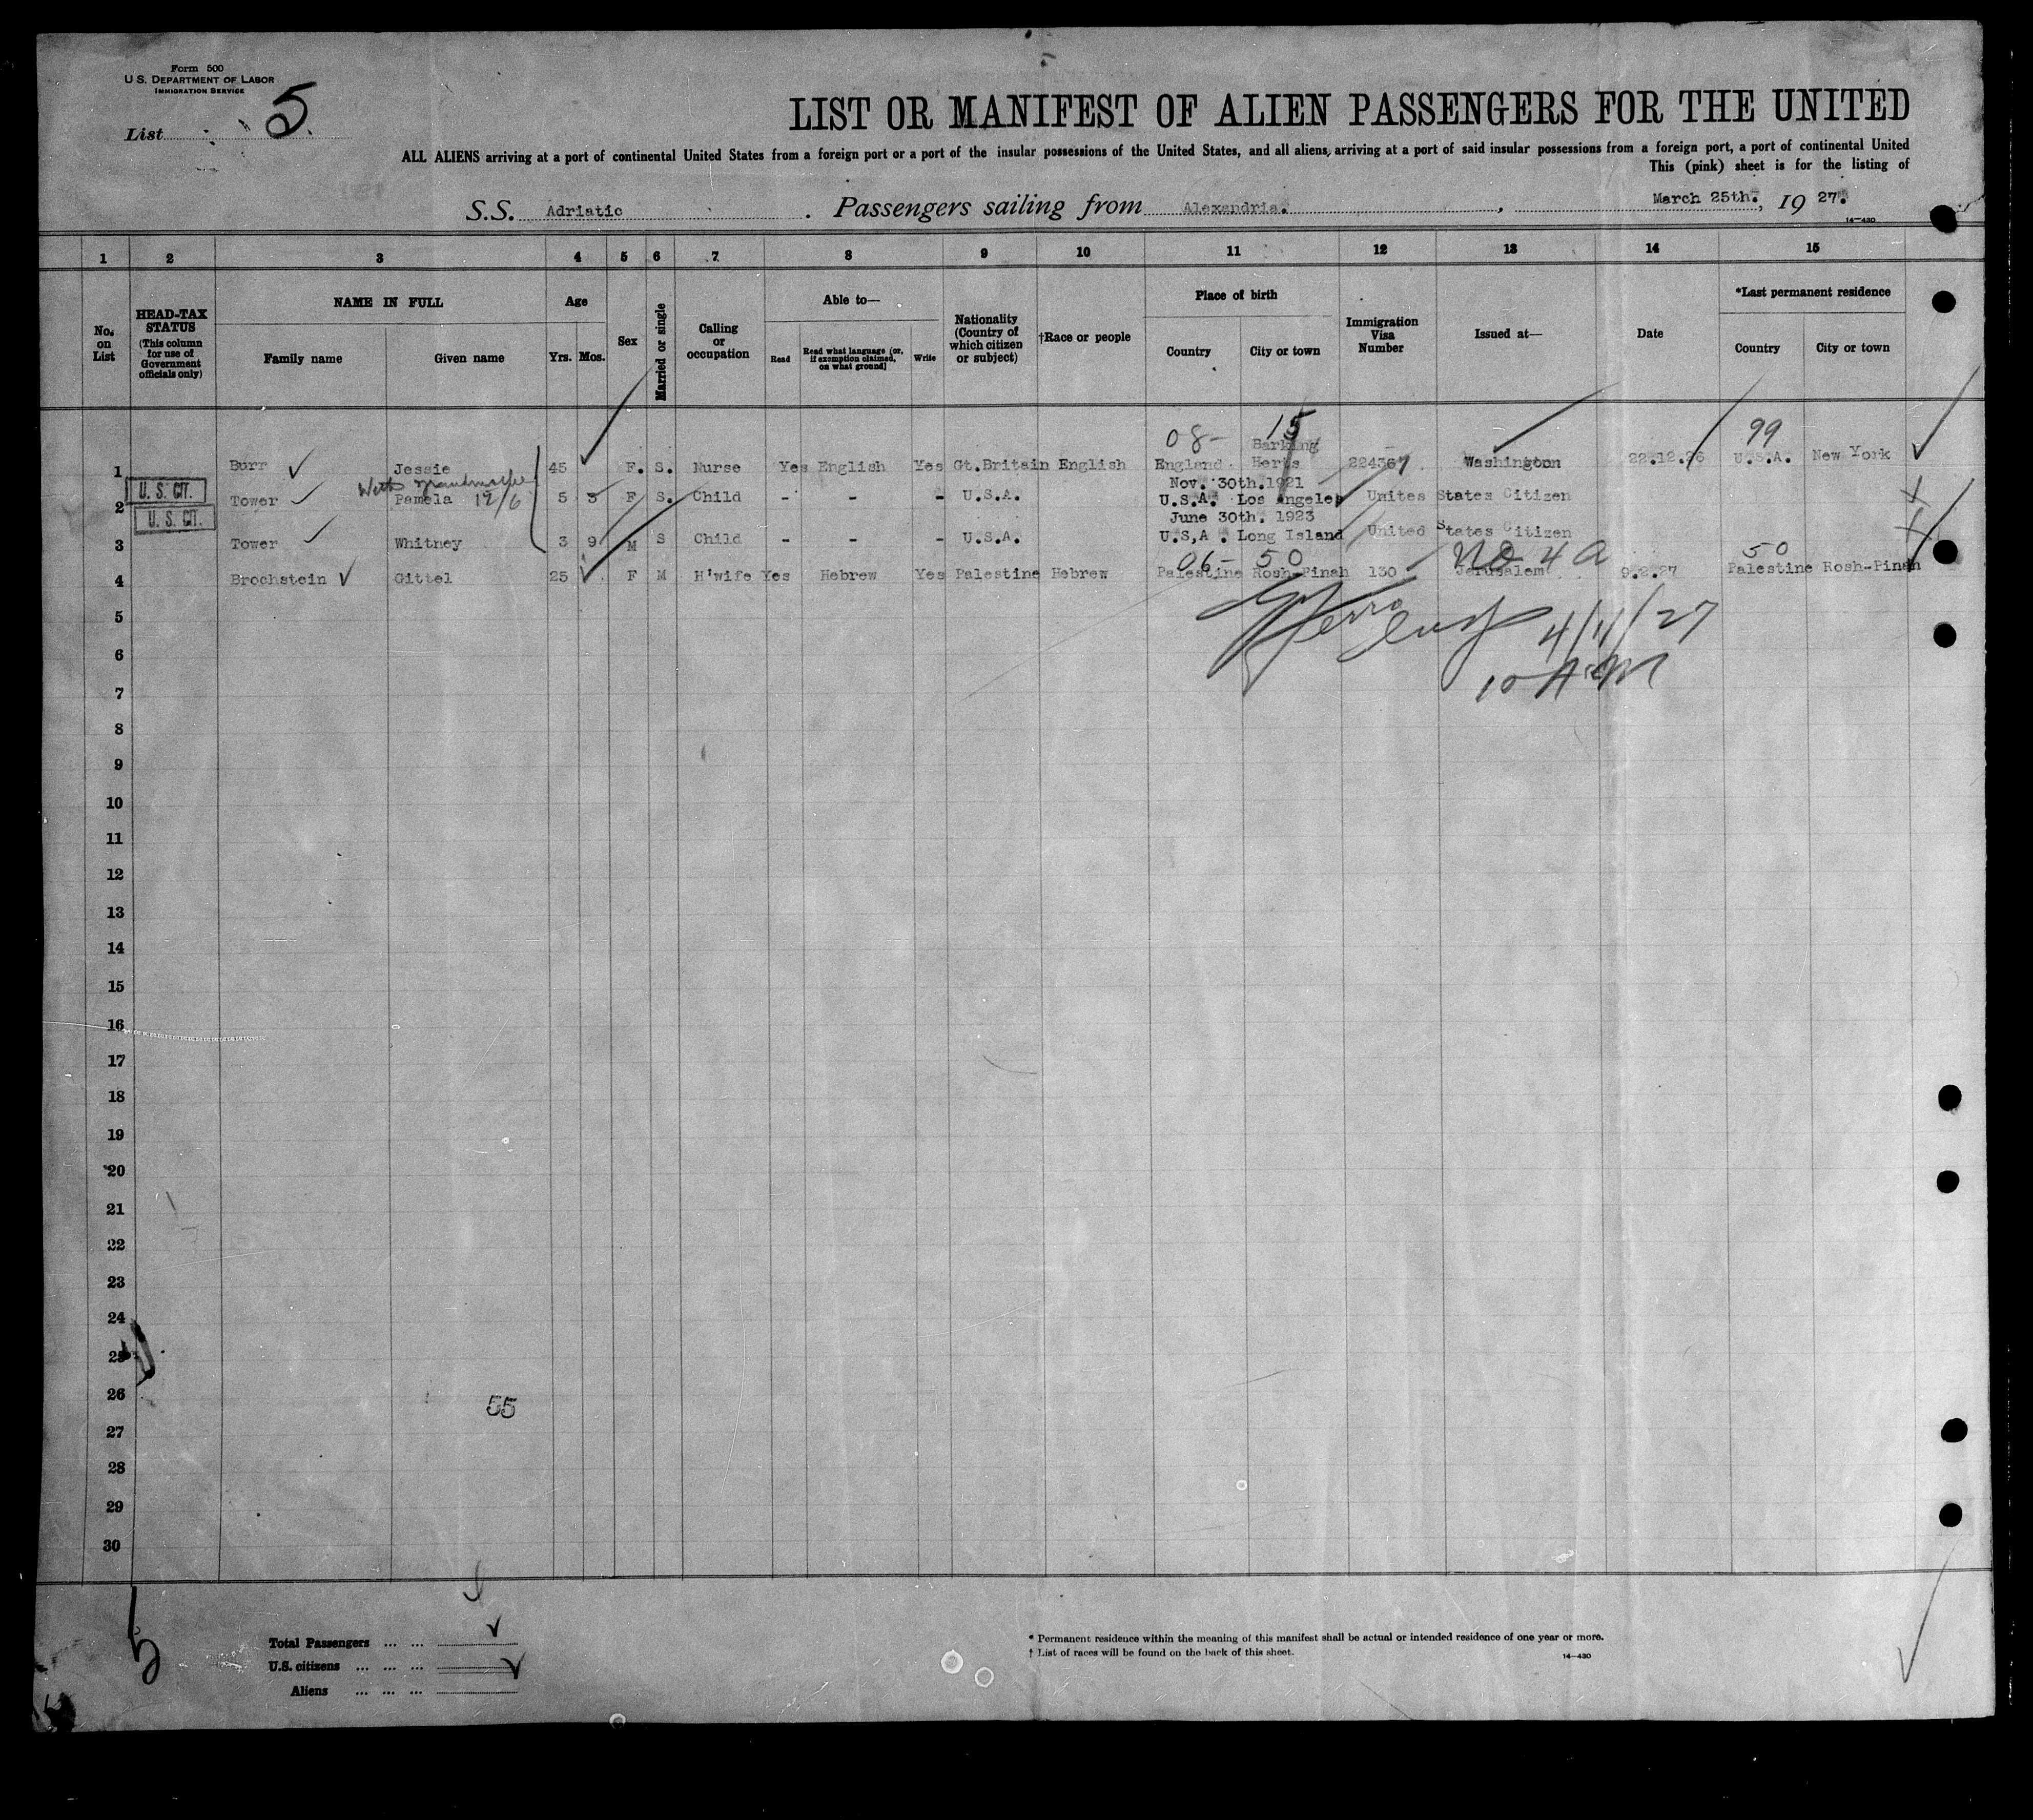 Form 500
U.S. DEPARTMENT OF LABOR
IMMIGRATION SERVICE
List 5.
LIST OR MANIFEST OF ALIEN PASSENGERS FOR THE UNITED
ALL ALIENS arriving at a port of continental United States from a foreign port or a port of the insular possessions of the United States, and all aliens arriving at a port of said insular possessions from a foreign port, a port of continental United
This (pink) sheet is for the listing of
S.S. Adriatic. Passengers sailing from Alexandria., March 25th., 19 27.
14—430
1 2 3 4 5 6 7 8 9 10 11 12 13 14 15
No. on List
HEAD-TAX STATUS (This column for use of Government officials only)
NAME IN FULL
Family name Given name
Age
Yrs. Mos.
Sex
Married or single
Calling or occupation
Able to—
Read Read what language (or, if exemption claimed, on what ground) Write
Nationality (Country of which citizen or subject)
†Race or people
Place of birth
Country City or town
Immigration Visa Number
Issued at—
Date
*Last permanent residence
Country City or town
08- 15 99
Barking
1 Burr Jessie 45 F. S. Nurse Yes English Yes Gt.Britain English England Herts 224367 Washington 22.12.26 U.S.A. New York
With grandmother
Nov. 30th.1921
U. S. CIT.
2 Tower Pamela 12/6 5 3 F S. Child - - - U.S.A. U.S.A. Los Angeles Unites States Citizen
U. S. CIT.
June 30th. 1923
3 Tower Whitney 3 9 M S Child - - - U.S.A. U.S,A. Long Island United States Citizen
06- 50 NQ 4 a 50
4 Brochstein Gittel 25 F M H'wife Yes Hebrew Yes Palestine Hebrew Palestine Rosh-Pinah 130 Jerusalem 9.2.27 Palestine Rosh-Pinah
5
4/11/27
6
10 A.M
7
8
9
10
11
12
13
14
15
16
17
18
19
20
21
22
23
24
25
26
55
27
28
29
30
Total Passengers ... ...
U.S. citizens ... ... ...
Aliens ... ... ...
* Permanent residence within the meaning of this manifest shall be actual or intended residence of one year or more.
† List of races will be found on the back of this sheet.
14—430